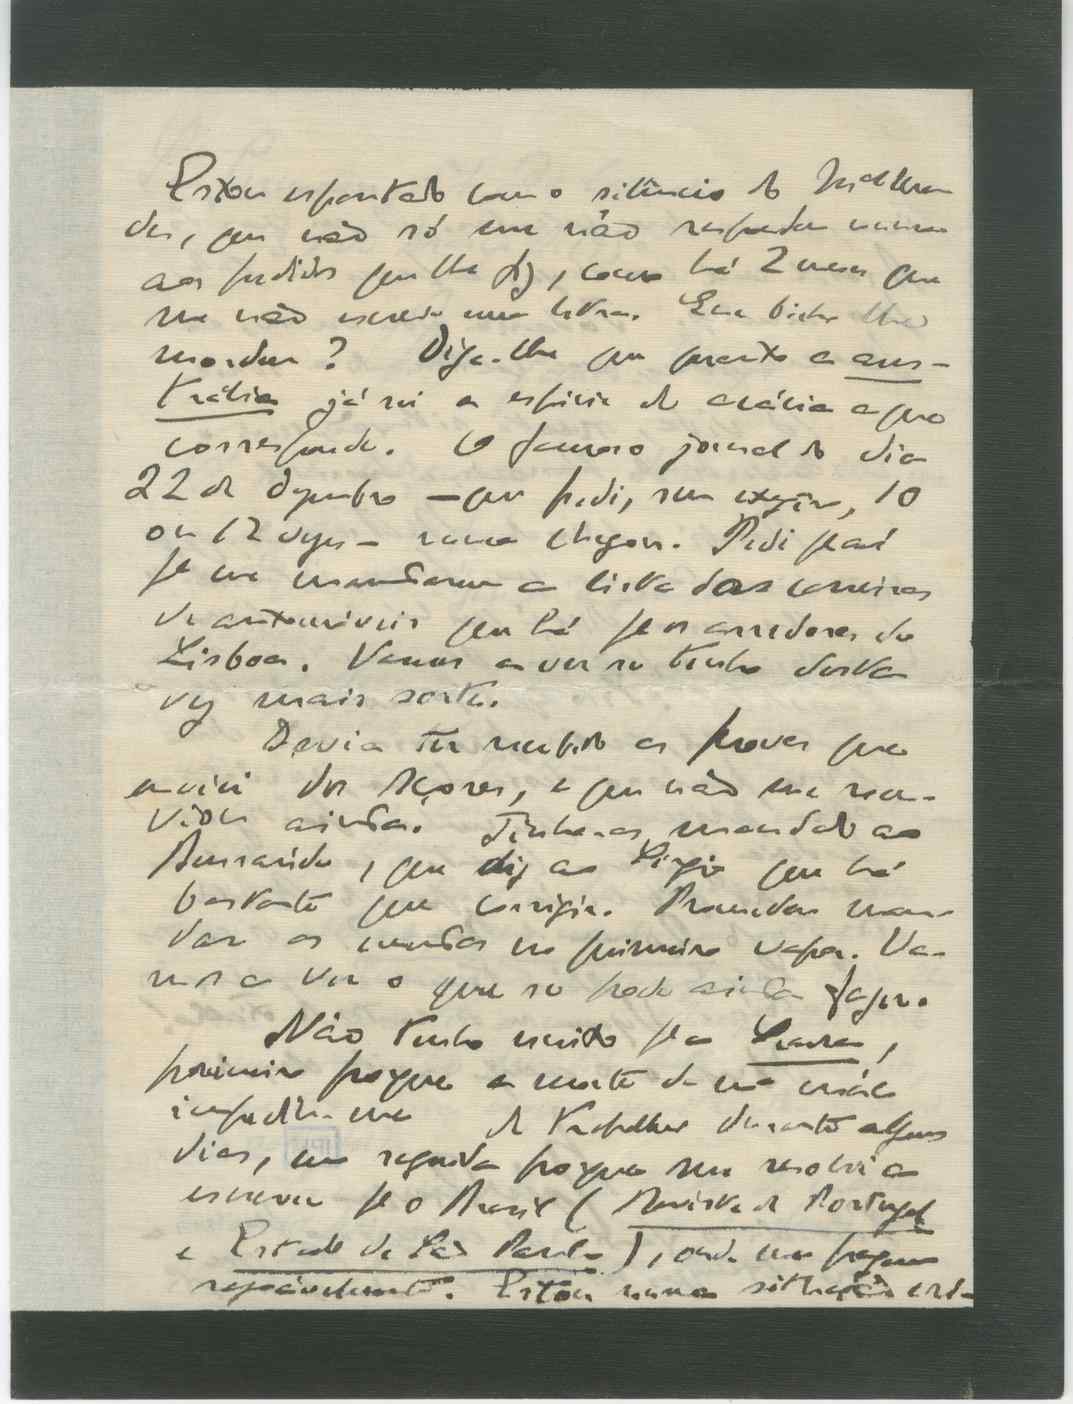 Estou espantado com o silêncio do Mid
des, que não só me não responde nunca
aos pedidos que lhe fiz, como há 2 meses que
me não escreve uma letra. Que bicho lhe
mordeu? Diga-lhe que quanto a aus-
trália já vi a espécie de acácia a que
corresponde. O famoso jornal do dia
22 de Dezembro — que pedi, sem exagêro, 10
ou 12 vezes — nunca chegou. Pedi para
me mandarem a lista das carreiras
de automóveis que há pª os arredores de
Lisboa. Vamos a ver se tenho desta
vez mais sorte.
Devia ter recebido as provas que
enviei dos Açores, e que não me reen-
viou ainda. Tinha-as mandado ao
que diz ao Sérgio que há
bastante que corrigir. Procedam man-
dar as emendas no primeiro vapor. Va-
mos a ver o que se pode ainda fazer.
Não tenho escrito pª a Seara,
primeiro porque a morte de mª mãe
impediu-me de trabalhar durante alguns
dias, em seguida porque me resolvi a
escrever pª o Brasil (Revista de Portugal
e Estado de São Paulo), onde me pagam
razoàvelmente. Estou numa situação crí-